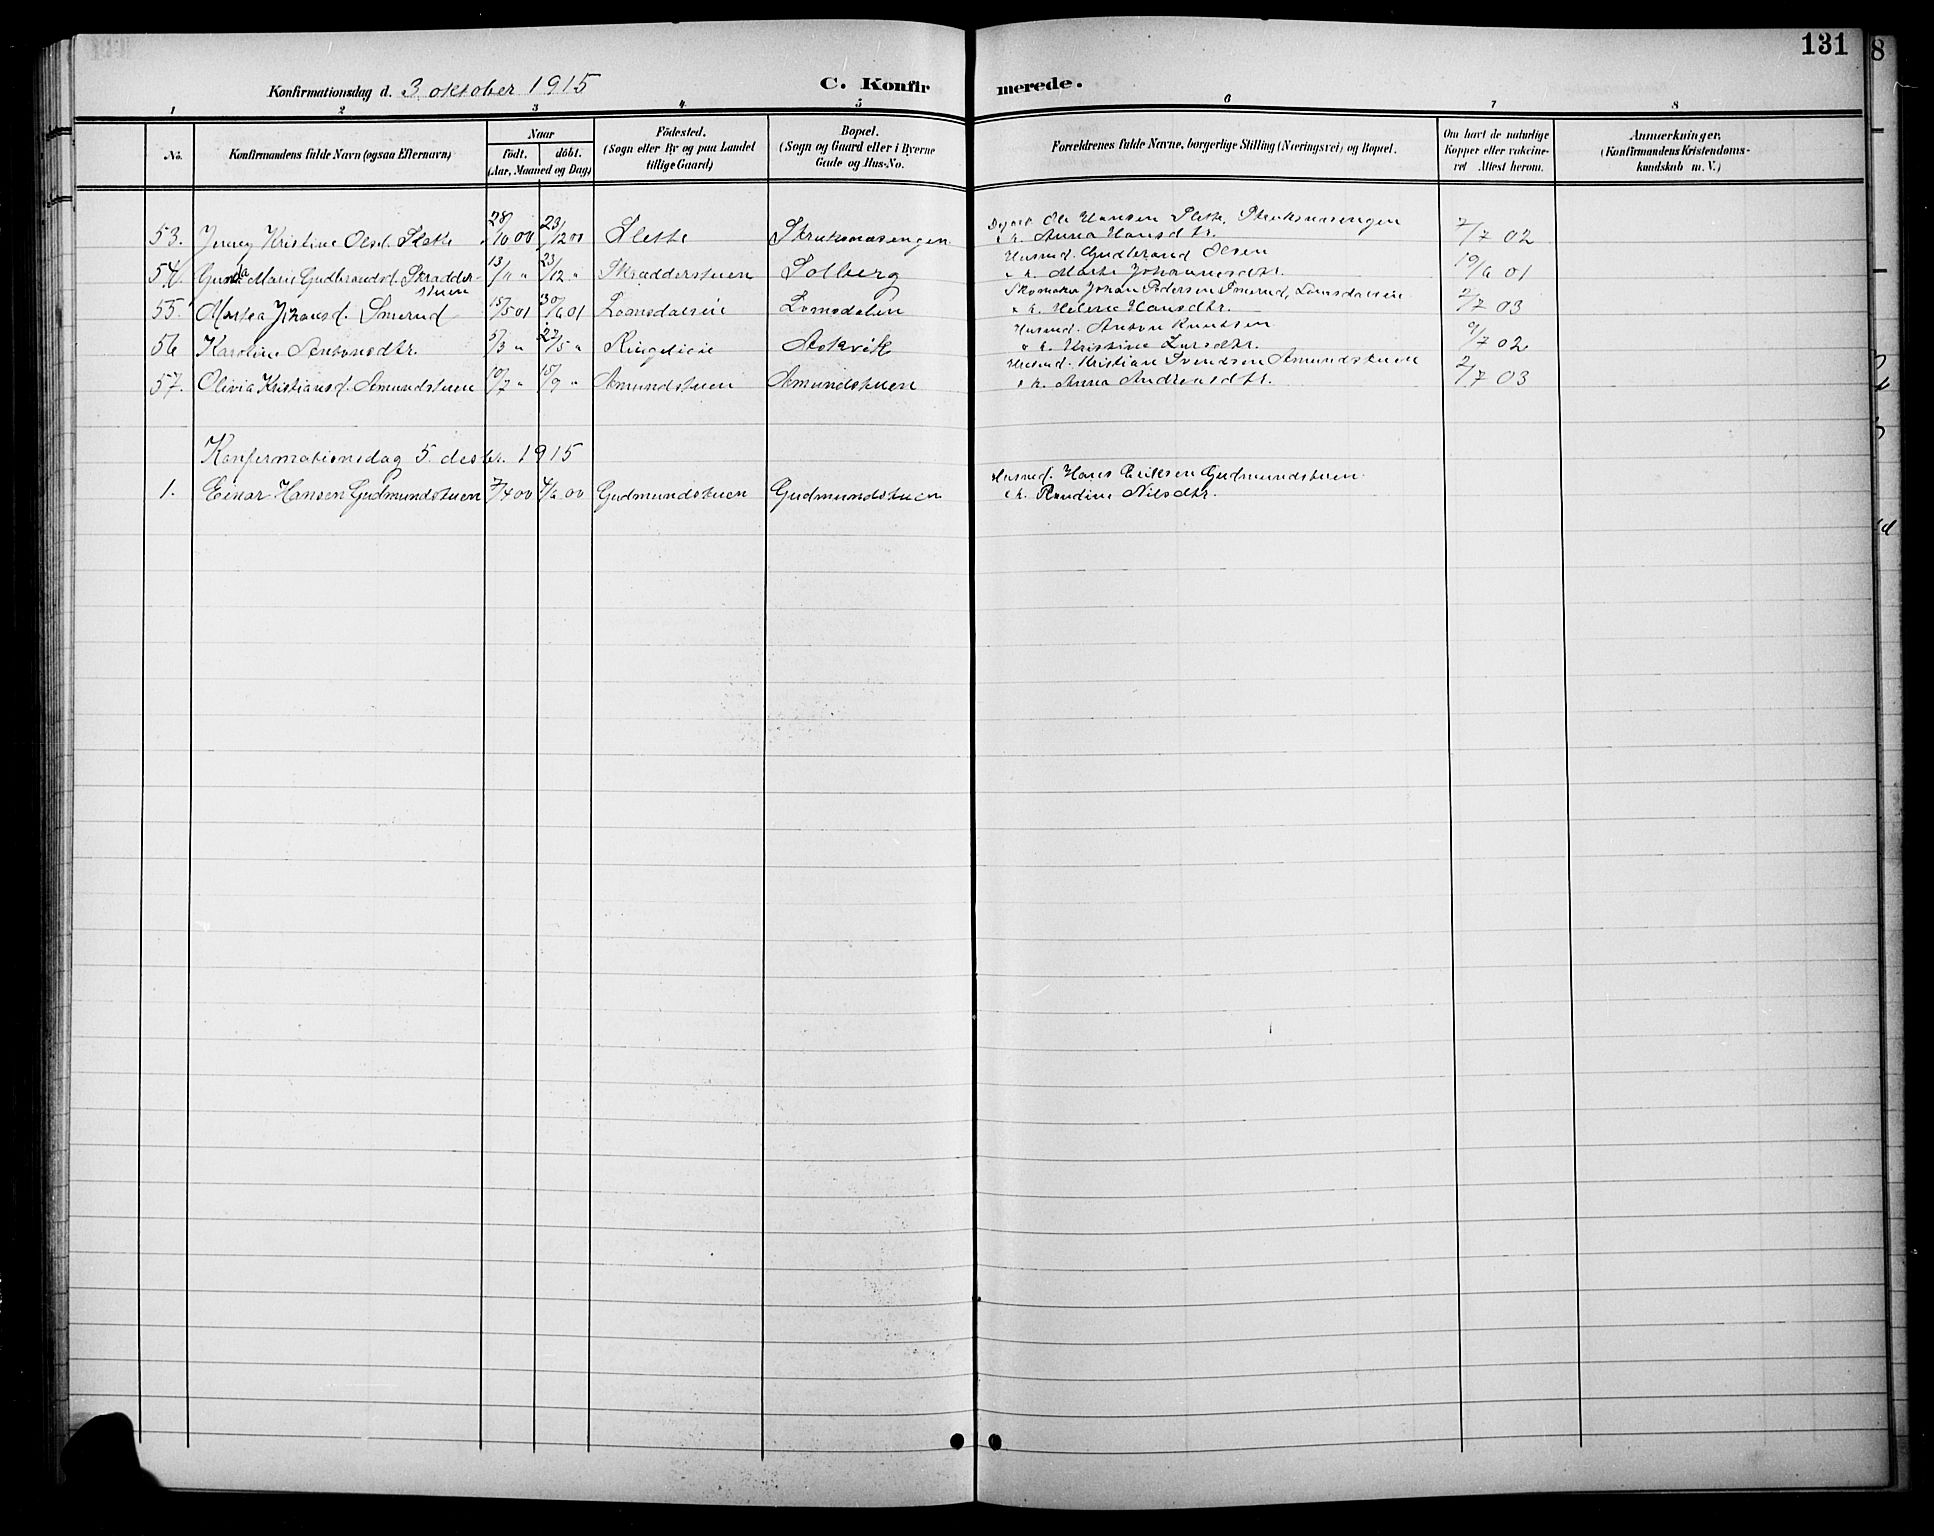 131
Konfirmationsdag d. 3 oktober 1915 C. Konfirmerede.
1 2 3 4 5 6 7 8
No. Konfirmandens fulde Navn (ogsaa Efternavn) Naar født. døbt. (Aar, Maaned og Dag) Fødested. (Sogn eller By og paa Landet tillige Gaard) Bopæl. (Sogn og Gaard eller i Byerne Gade og Hus-No. Forældrenes fulde Navne, borgerlige Stilling (Næringsvei) og Bopæl. Om havt de naturlige Kopper eller vakcineret Attest herom. Anmærkninger, (Konfirmandens Kristendomskundskab m. V.)
53. Jenny Kristine Olsd. Slette 28/10 00 23/12 00 Slette Skruksnæsengen Ole Hansen Slette, Skruksnæsengen 2/7 02
Anna Hansdtr.
54. Gunda Marie Gudbrandsd. Skrædderstuen 13/11 " 23/12 " Skrædderstuen Solberg Husmd. Gudbrand Olsen 19/6 01
Marte Johannesdtr.
55. Martea Johansd. Smerud 15/5 01 30/6 01 Lomsdalseie Lomsdalen Skomaker Johan Pedersen Smerud, Lomsdalseie 2/7 03
Helene Hansdtr.
56 Karoline Antonsdtr. 5/3 " 27/5 " Ringelieie Askvik Husmd. Anton Knutsen 9/7 02
Kristine Larsdtr.
57. Olivia Kristiansd. Amundstuen 10/7 " 15/9 " Amundstuen Amundstuen Husmd. Kristian Svendsen Amundstuen 2/7 03
Anna Andreasdtr.
Konfirmationsdag 5. desbr. 1915
1. Einar Hansen Gudmundstuen 7/4 00 4/6 00 Gudmundstuen Gudmundstuen Husmd. Hans Eriksen Gudmundstuen
Randine Nilsdtr.